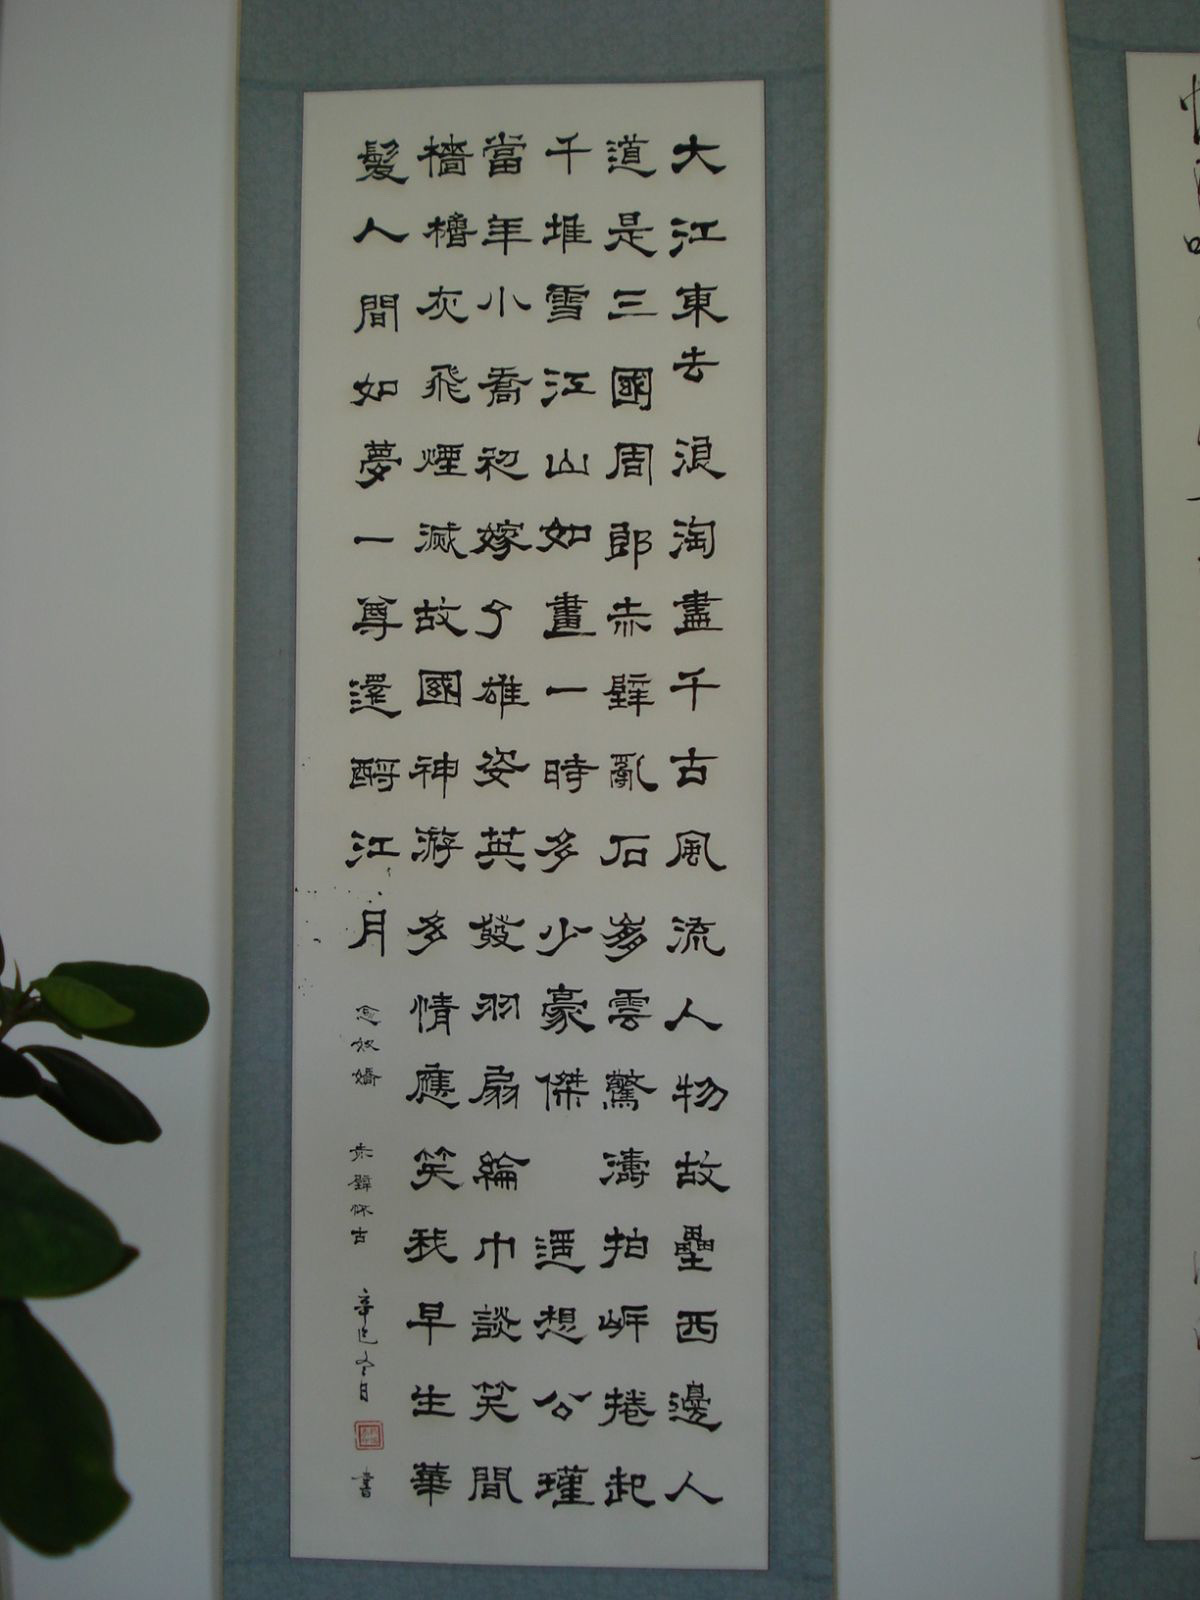 大江東去浪淘盡千古風流人物故壘西邊人
道是三國周郎赤壁亂石崩雲驚濤拍岸捲起
千堆雪江山如畫一時多少豪傑 遥想公瑾
當年小喬初嫁了雄姿英發羽扇綸巾談笑間
檣櫓灰飛煙滅故國神游多情應笑我早生華
髮人間如夢一尊還酹江月 念奴嬌 赤壁怀古 辛巳冬月 書